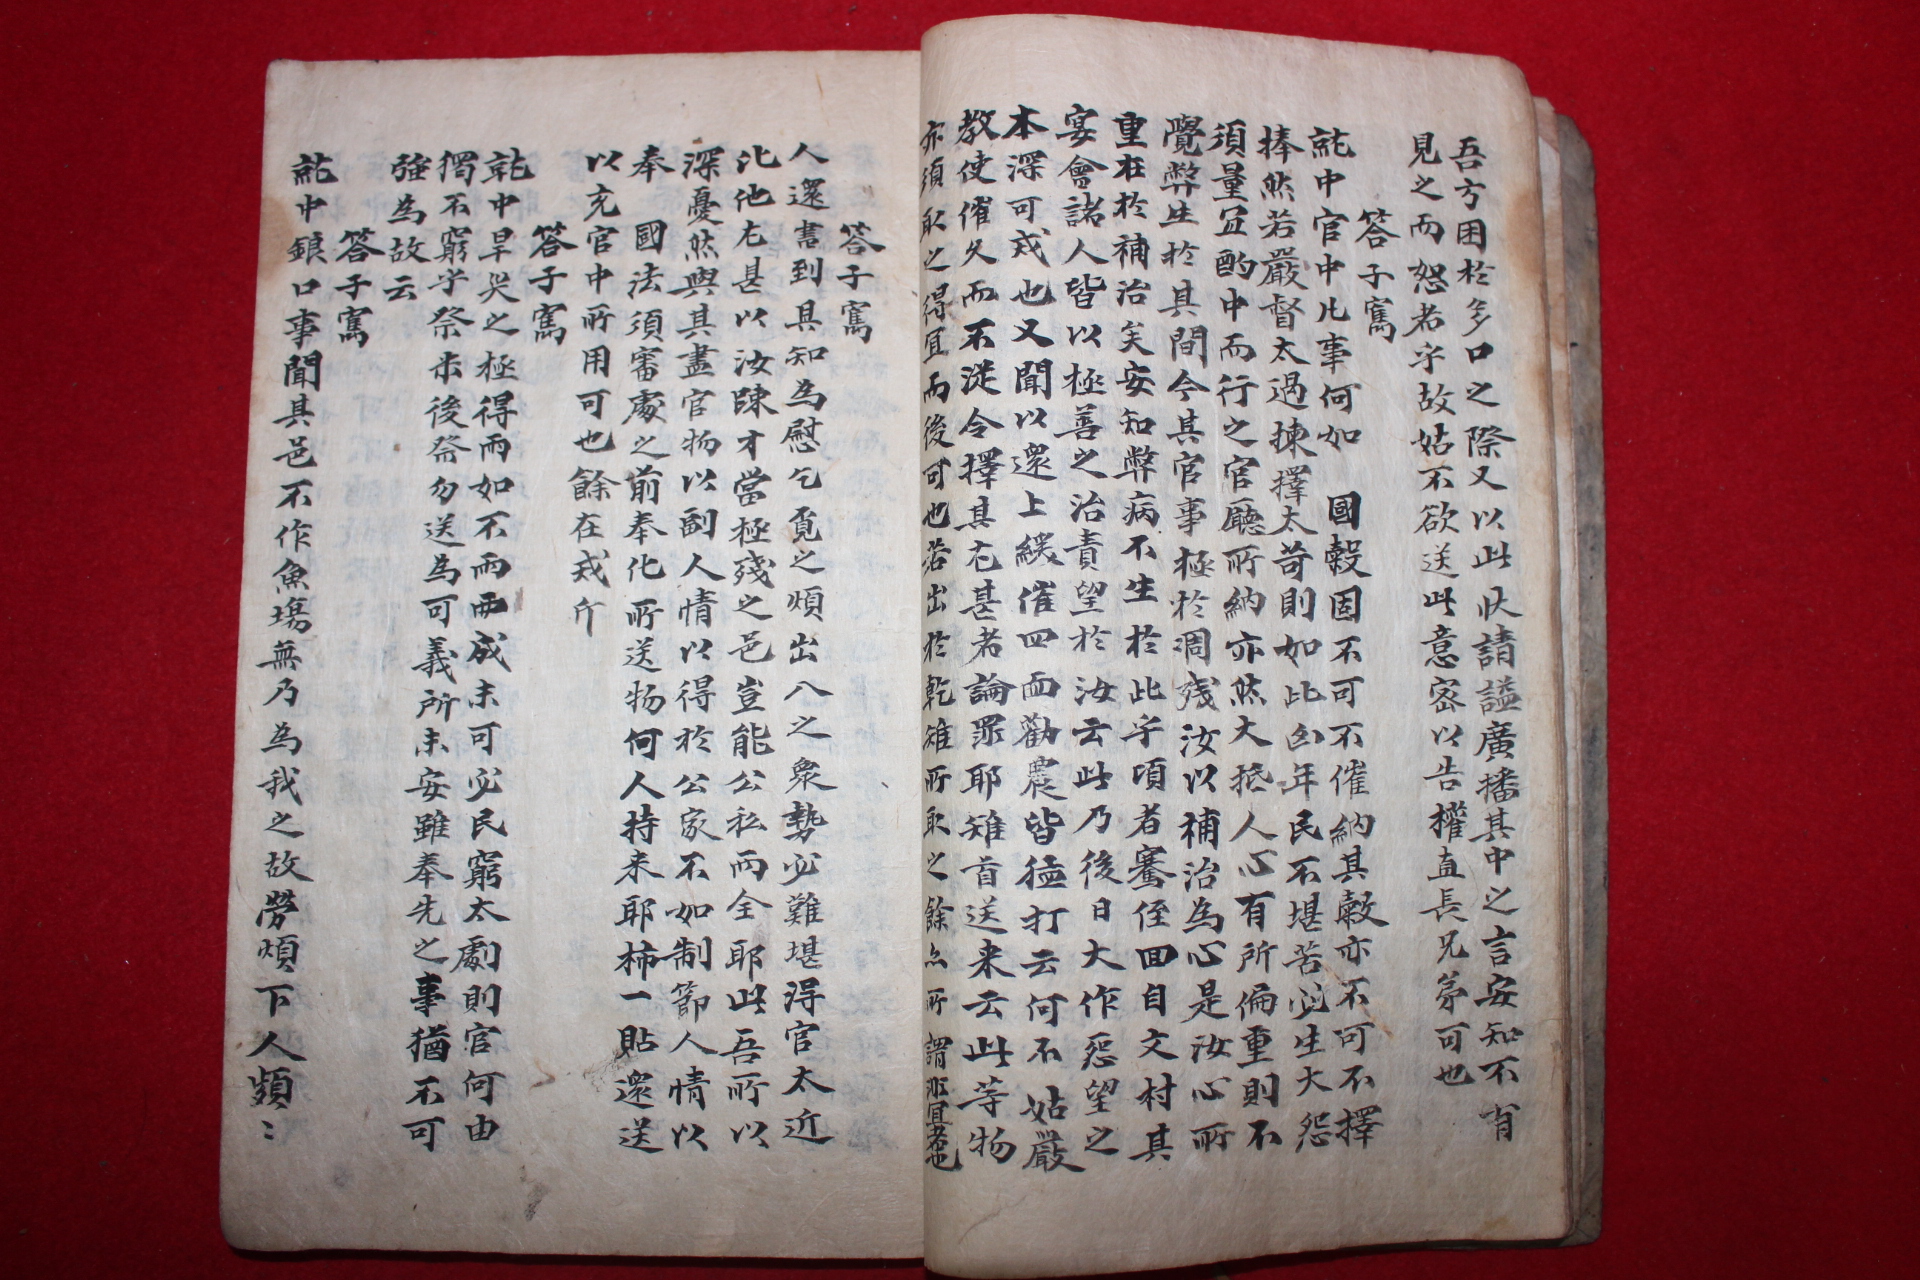 吾方困於多口之際又以此狀請謚廣播其中之言安知不有
見之而恕者乎故姑不欲送此意密以告權直長兄弟可也
答子寯
就中官中凡事何如 國穀固不可不催納其穀亦不可不擇
捧然若嚴督太過揀擇太苛則如此凶年民不堪苦必生大怨
須量宜酌中而行之官廳所納亦然大抵人心有所偏重則不
覺弊生於其間今其官事極於凋殘汝以補治為心是汝心所
重在於補治矣安知弊病不生於此乎頃者騫侄回自文村其
宴會諸人皆以極善之治責望於汝云此乃後日大作怨望之
本深可戒也又聞以還上緩催四面勸農皆猛打云何不姑嚴
教使催久而不從令擇其尤甚者論罪耶雉首送来云此等物
亦須取之得宜而後可也若出於乾雉所取之餘亦所謂非宜者也
答子寯
人還書到具知為慰乞覓之煩出八之衆勢必難堪得官太近
比他尤甚以汝踈才當極殘之邑豈能公私兩全耶此吾所以
深憂然與其盡官物以副人情以得於公家不如制節人情以
奉 國法須審處之前奉化所送物何人持来耶柿一貼還送
以充官中所用可也餘在戒斤
答子寯
就中旱災之極得雨如不雨西成未可必民窮太劇則官何由
獨不窮乎祭米後祭勿送為可義所未安雖奉先之事猶不可
強為故云
答子寯
就中銀口事聞其邑不作魚塲無乃為我之故勞煩下人頻ゝ